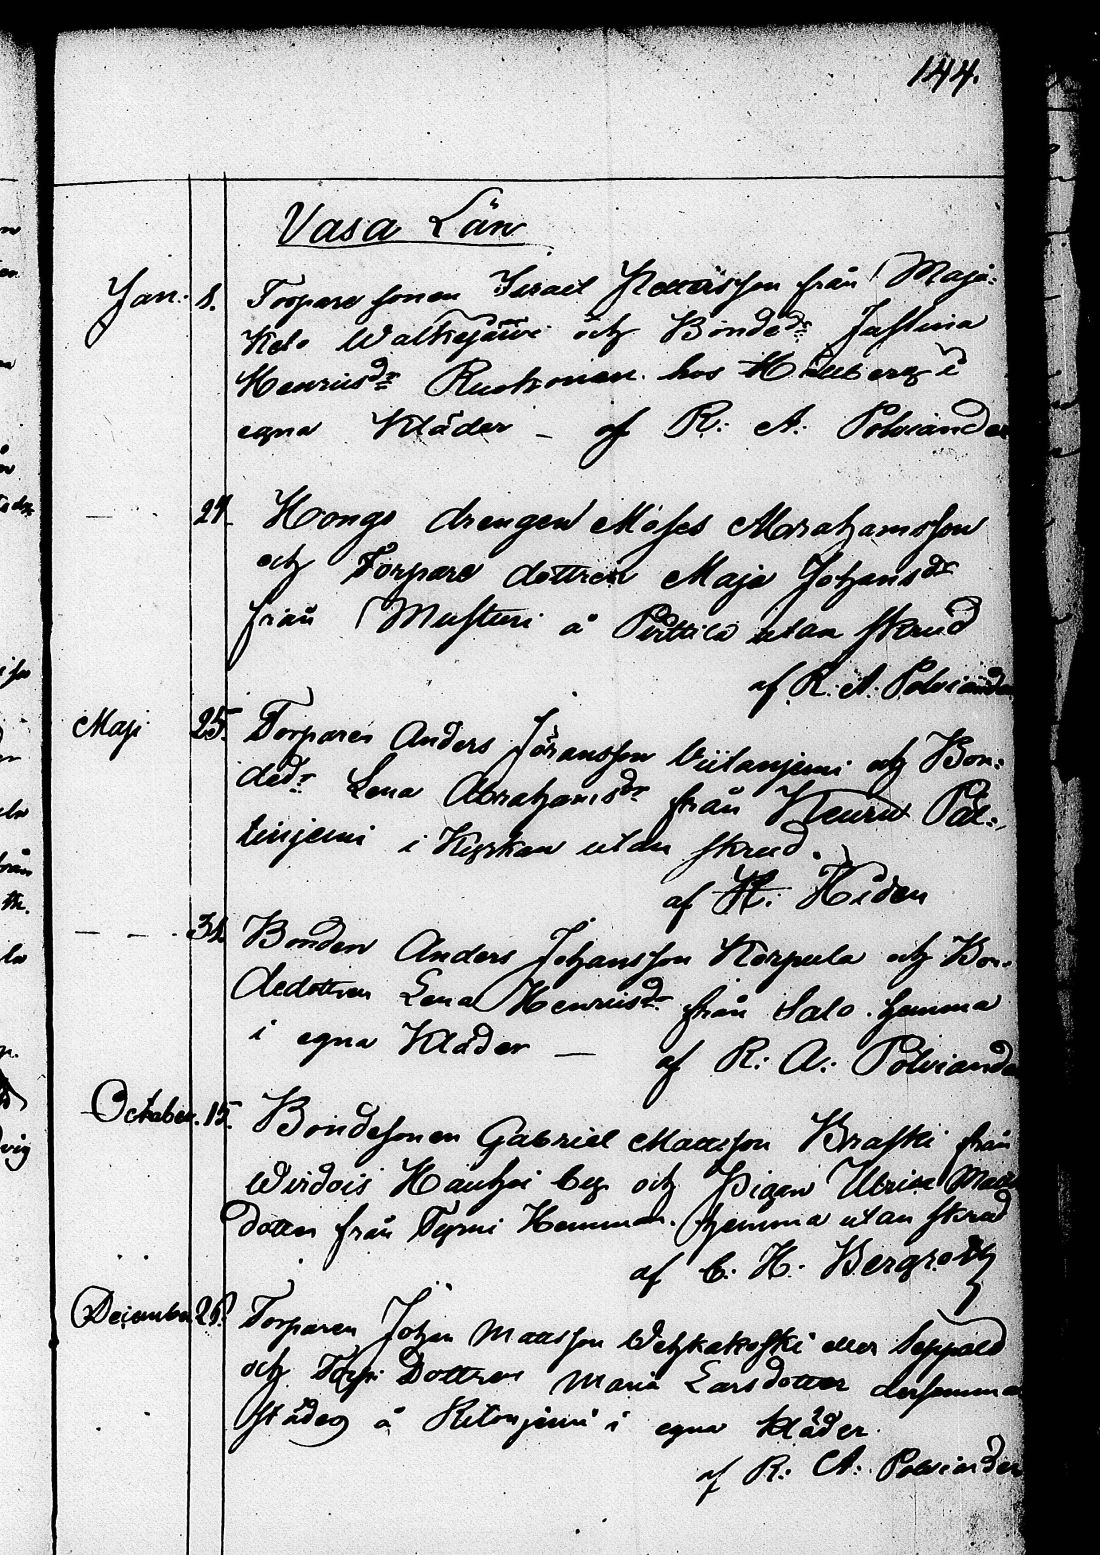 144.
Vasa Län
Jan: 8. Torpare sonen Israel Pettersson från Maja-
Kelo Walkejärvi och Bonded:r Justina
Henriksd:r Ruokonen hos Hällberg i
egna Kläder – af R: A: Polviander
— 27. Kongs drengen Moses Abrahamsson
och Torpare dottren Maja Johansd:r
från Musturi å Perttilä utan skrud
af R. A. Polviander
Maji 25. Torparen Anders Jöransson Viitaniemi och Bon-
ded:r Lena Abrahamsd:r från Keuru Pöl-
linjemi i Kyrkan utan skrud.
af H. Hiden
— — 31. Bonden Anders Johansson Korpula och Bon-
dedottren Lena Henriksd:r från Salo. hemma
i egna Kläder — af R: A: Polviand
October. 15. Bondesonen Gabriel Mattsson Kraski från
Wirdois Hauho by och Pigan Ulrica Matts
dotter från Tyrni Hemman. hemma utan skrud
af C. H. Bergroth
December 26. Torparen Johan Mattsson Vehkakoski eller Seppälä
och Torp: Dottren Maria Larsdotter dersamma
städes å Ritoniemi i egna Kläder.
af R: A: Polviander